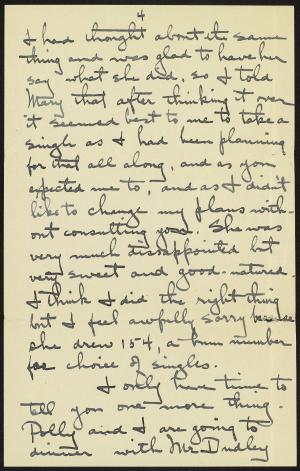 4
I had thought about the same
thing and was glad to have her
say what she did, so I told
Mary that after thinking it over
it seemed best to me to take a
single as I had been planning
for that all along, and as you
expected me to, and as I didn't
like to change my plans with-
out consulting you. She was
very much disappointed but
very sweet and good-natured.
I think I did the right thing
but I feel awfully sorry because
she drew 154, a bum number
for choice of singles.
I only have time to
tell you one more thing.
Polly and I are going to
dinner with Mr. Dudley